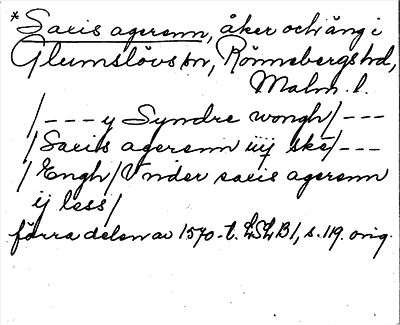 * Saxis agerenn, åker och äng i
Glumslövs sn, Rönnebergs hd,
Malm. l.
/ - - - y Syndre wongh / - - -
/ Saxis agerenn iiij ske / - - -
/ Engh / Vnder saxis agerenn
ij less /
förra delen av 1570-t. LSLB 1, s. 119. orig.